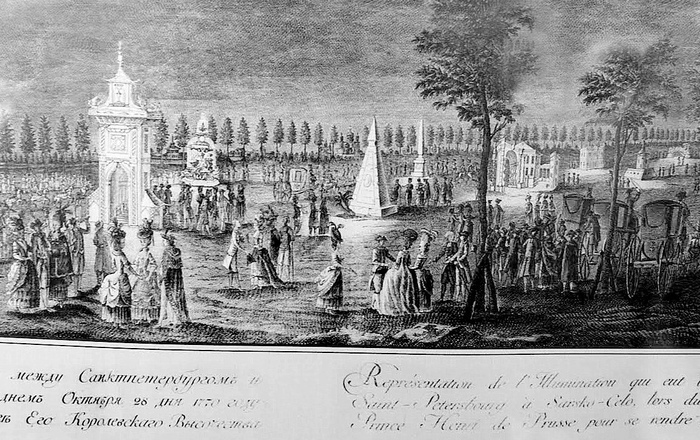 между Санктпетербургомъ и
днемъ Октября 28 дня 1770 году
Его Королевскаго Высочества
Représentation de l'Illumination qui eut
Saint-Petersbourg à Sarsko-Celo, lors du
Prince Henri de Prusse pour se rendre